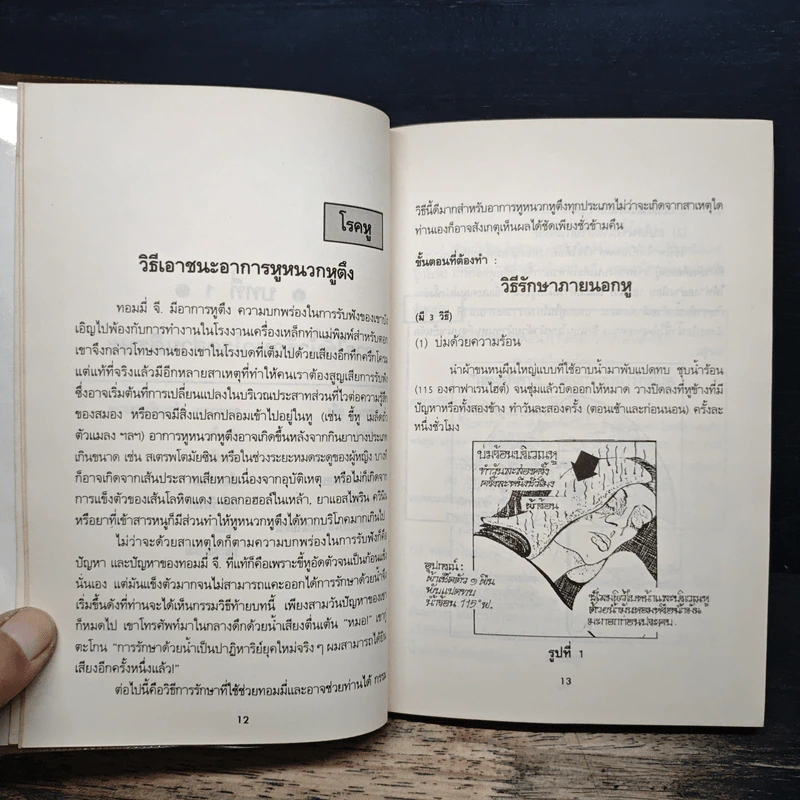 โรคหู
วิธีเอาชนะอาการหูหนวกหูตึง
ทอมมี่ จี. มีอาการหูตึง ความบกพร่องในการรับฟังของเขา
เอิญไปพ้องกับการทำงานในโรงงานเครื่องเหล็กทำแม่พิมพ์สำหรับตอก
เขาจึงกล่าวโทษงานของเขาในโรงบดที่เต็มไปด้วยเสียงอึกทึกครึกโครม
แต่แท้ที่จริงแล้วมีอีกหลายสาเหตุที่ทำให้คนเราต้องสูญเสียการรับฟัง
ซึ่งอาจเริ่มต้นที่การเปลี่ยนแปลงในบริเวณประสาทส่วนที่ไวต่อความรู้สึก
ของสมอง หรืออาจมีสิ่งแปลกปลอมเข้าไปอยู่ในหู (เช่น ขี้หู เมล็ดถั่ว
ตัวแมลง ฯลฯ) อาการหูหนวกหูตึงอาจเกิดขึ้นหลังจากกินยาบางประเภท
เกินขนาด เช่น สเตรพโตมัยซิน หรือในช่วงระยะหมดระดูของผู้หญิง บาง
ก็อาจเกิดจากเส้นประสาทเสียหายเนื่องจากอุบัติเหตุ หรือไม่ก็เกิดจาก
การแข็งตัวของเส้นโลหิตแดง แอลกอฮอล์ในเหล้า, ยาแอสไพริน ควินิน
หรือยาที่เข้าสารหนูก็มีส่วนทำให้หูหนวกหูตึงได้หากบริโภคมากเกินไป
ไม่ว่าจะด้วยสาเหตุใดก็ตามความบกพร่องในการรับฟังก็คือ
ปัญหา และปัญหาของทอมมี่ จี. ที่แท้ก็คือเพราะขี้หูอัดตัวจนเป็นก้อนแข็ง
นั่นเอง แต่มันแข็งตัวมากจนไม่สามารถแคะออกได้การรักษาด้วยน้ำจึง
เริ่มขึ้นดังที่ท่านจะได้เห็นกรรมวิธีท้ายบทนี้ เพียงสามวันปัญหาของเขา
ก็หมดไป เขาโทรศัพท์มาในกลางดึกด้วยน้ำเสียงตื่นเต้น "หมอ!" เขา
ตะโกน "การรักษาด้วยน้ำเป็นปาฏิหาริย์ยุคใหม่จริงๆ ผมสามารถได้ยิน
เสียงอีกครั้งหนึ่งแล้ว!"
ต่อไปนี้คือวิธีการรักษาที่ใช้ช่วยทอมมี่และอาจช่วยท่านได้ กรรม
12
วิธีนี้ดีมากสำหรับอาการหูหนวกหูตึงทุกประเภทไม่ว่าจะเกิดจากสาเหตุใด
ท่านเองก็อาจสังเกตุเห็นผลได้ชัดเพียงชั่วข้ามคืน
ขั้นตอนที่ต้องทำ :
วิธีรักษาภายนอกหู
(มี 3 วิธี)
(1) บ่มด้วยความร้อน
นำผ้าขนหนูผืนใหญ่แบบที่ใช้อาบน้ำมาพับแปดทบ ชุบน้ำร้อน
(115 องศาฟาเรนไฮต์) จนชุ่มแล้วบิดออกให้หมาด วางปิดลงที่หูข้างที่มี
ปัญหาหรือทั้งสองข้าง ทำวันละสองครั้ง (ตอนเช้าและก่อนนอน) ครั้งละ
หนึ่งชั่วโมง
บ่มร้อนบริเวณหู
ทำวันละสองครั้ง
ครั้งละหนึ่งชั่วโมง
ผ้าร้อน
อุปกรณ์ :
ผ้าเช็ดตัว ๑ ผืน
พับแปดทบ
น้ำร้อน 115° ฟ.
รูปที่ 1
13